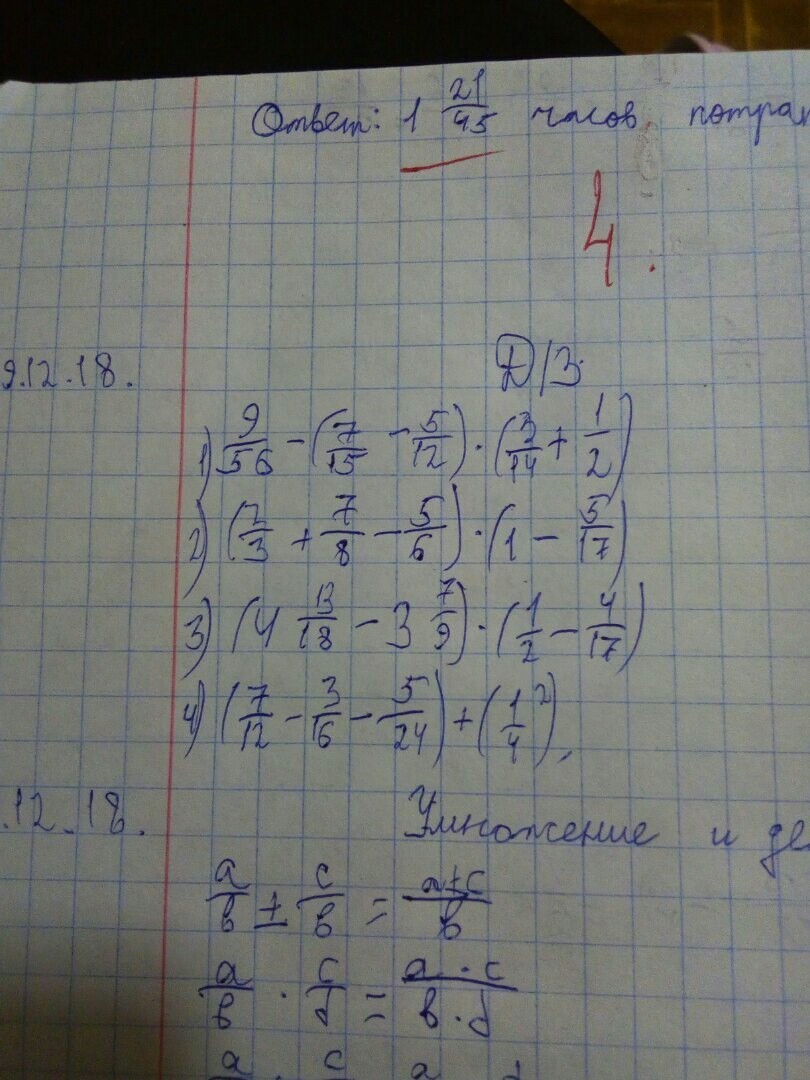 Ответ: 1 21/45 часов потрат
4.
9.12.18. Д/З.
1) 9/56 - (7/15 - 5/12) · (3/14 + 1/2)
2) (2/3 + 7/8 - 5/6) · (1 - 5/17)
3) (4 13/18 - 3 7/9) · (1/2 - 4/17)
4) (7/12 - 3/16 - 5/24) + (1/4 ²)
.12.18. Умножение и де
a/в ± c/в = a+c/в
a/в · c/d = a · c/в · d
a c a